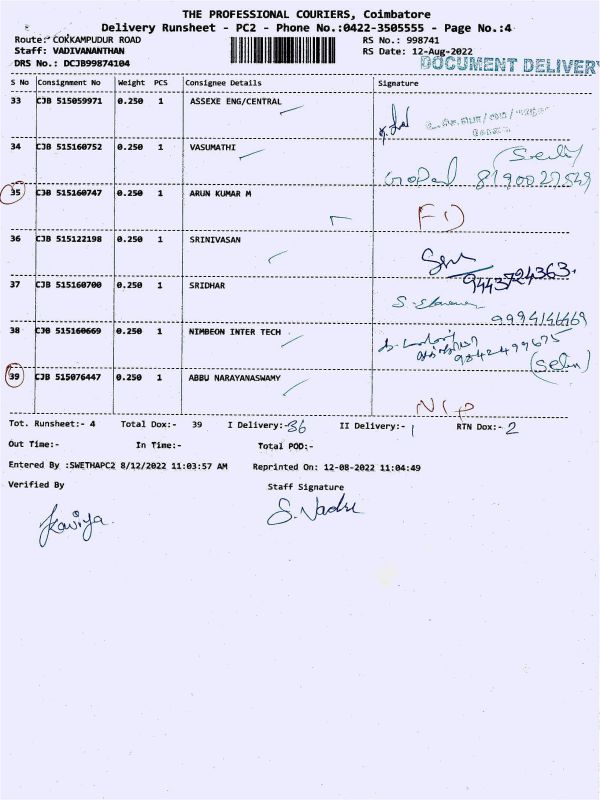 THE PROFESSIONAL COURIERS, Coimbatore
Delivery Runsheet - PC2 - Phone No.:0422-3505555 - Page No.:4
Route:- COKKAMPUDUR ROAD RS No.: 998741
Staff: VADIVANANTHAN RS Date: 12-Aug-2022
DRS No.: DCJB99874104 DOCUMENT DELIVERY
S No Consignment No Weight PCS Consignee Details Signature
33 CJB 515059971 0.250 1 ASSEXE ENG/CENTRAL
34 CJB 515160752 0.250 1 VASUMATHI
Gopal 8190027549
35 CJB 515160747 0.250 1 ARUN KUMAR M
36 CJB 515122198 0.250 1 SRINIVASAN
9443724363.
37 CJB 515160700 0.250 1 SRIDHAR
9994146469
38 CJB 515160669 0.250 1 NIMBEON INTER TECH
9842499675
39 CJB 515076447 0.250 1 ABBU NARAYANASWAMY
Tot. Runsheet:- 4 Total Dox:- 39 I Delivery:-36 II Delivery:- 1 RTN Dox:- 2
Out Time:- In Time:- Total POD:-
Entered By :SWETHAPC2 8/12/2022 11:03:57 AM Reprinted On: 12-08-2022 11:04:49
Verified By Staff Signature
Kaviya. S. Vadi